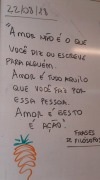 22/08/23
"AMOR NÃO É O QUE
VOCÊ DIZ OU ESCREVE
PARA ALGUÉM.
AMOR É TUDO AQUILO
QUE VOCÊ FAZ POR
ESSA PESSOA.
AMOR É GESTO
É AÇÃO."
FRASES
FILÓSOFO